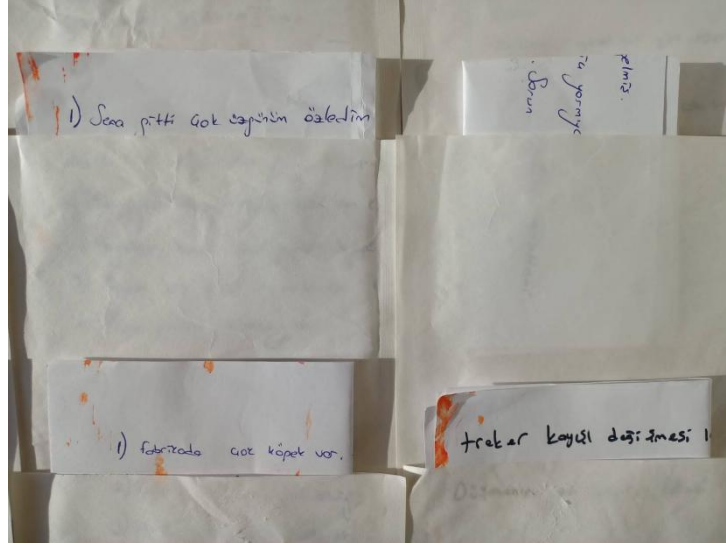 1) Sena gitti çok üzgünüm özledim
gelmiş.
Sorun
1) fabrikada çok köpek var.
treker kayışı değişmesi